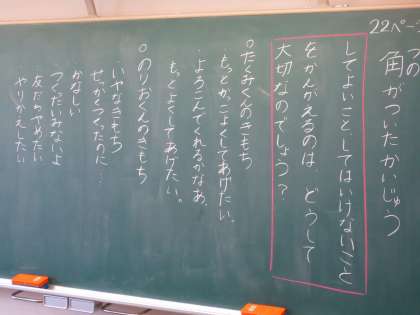 22ページ
つの
角がついたかいじゅう
してよいこととしてはいけないこと
をかんがえるのは、どうして
大切なのでしょう？
○たくみくんのきもち
もっとかっこよくしてあげたい。
・よろこんでくれるかなあ。
もっとよくしてあげたい。
○のりおくんのきもち
・いやなきもち
せっかくつくったのに…
かなしい
つくったいみないよ
友だちやめたい
やりかえしたい